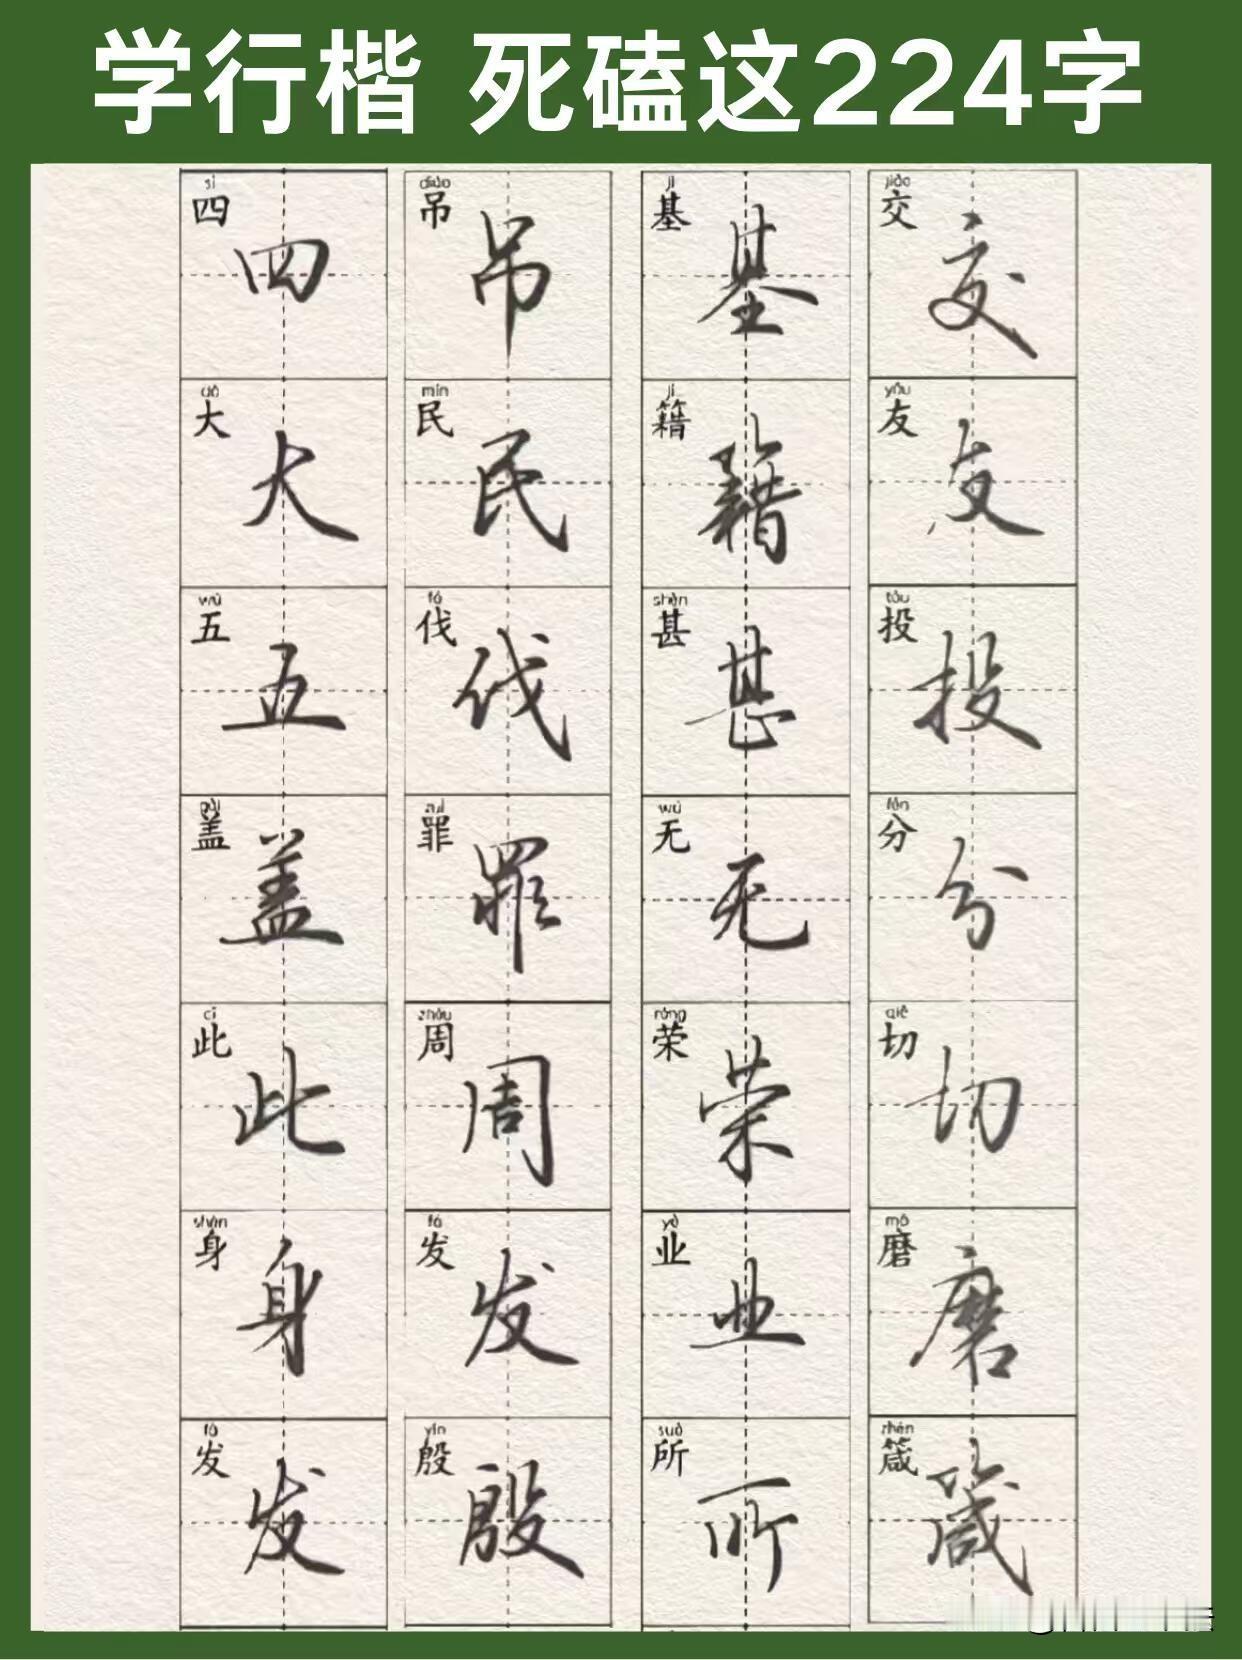 学行楷 死磕这224字
sì diào jī jiāo
四 吊 基 交
四 吊 基 交
dà mín jí yǒu
大 民 籍 友
大 民 籍 友
wǔ fá shèn tóu
五 伐 甚 投
五 伐 甚 投
gài zuì wú fēn
盖 罪 无 分
盖 罪 无 分
cǐ zhōu róng qiē
此 周 荣 切
此 周 荣 切
shēn fā yè mó
身 发 业 磨
身 发 业 磨
fà yīn suǒ zhēn
发 殷 所 箴
发 殷 所 箴